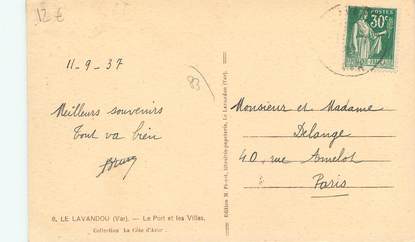 12 €
11-9-37
Meilleurs souvenirs
Tout va bien
8. LE LAVANDOU (Var). — Le Port et les Villas.
Collection La Côte d'Azur
83
Edition librairie-papeterie, Le Lavandou (Var).
POSTES
30c
Monsieur et Madame
Delange
40, rue Amelot
Paris